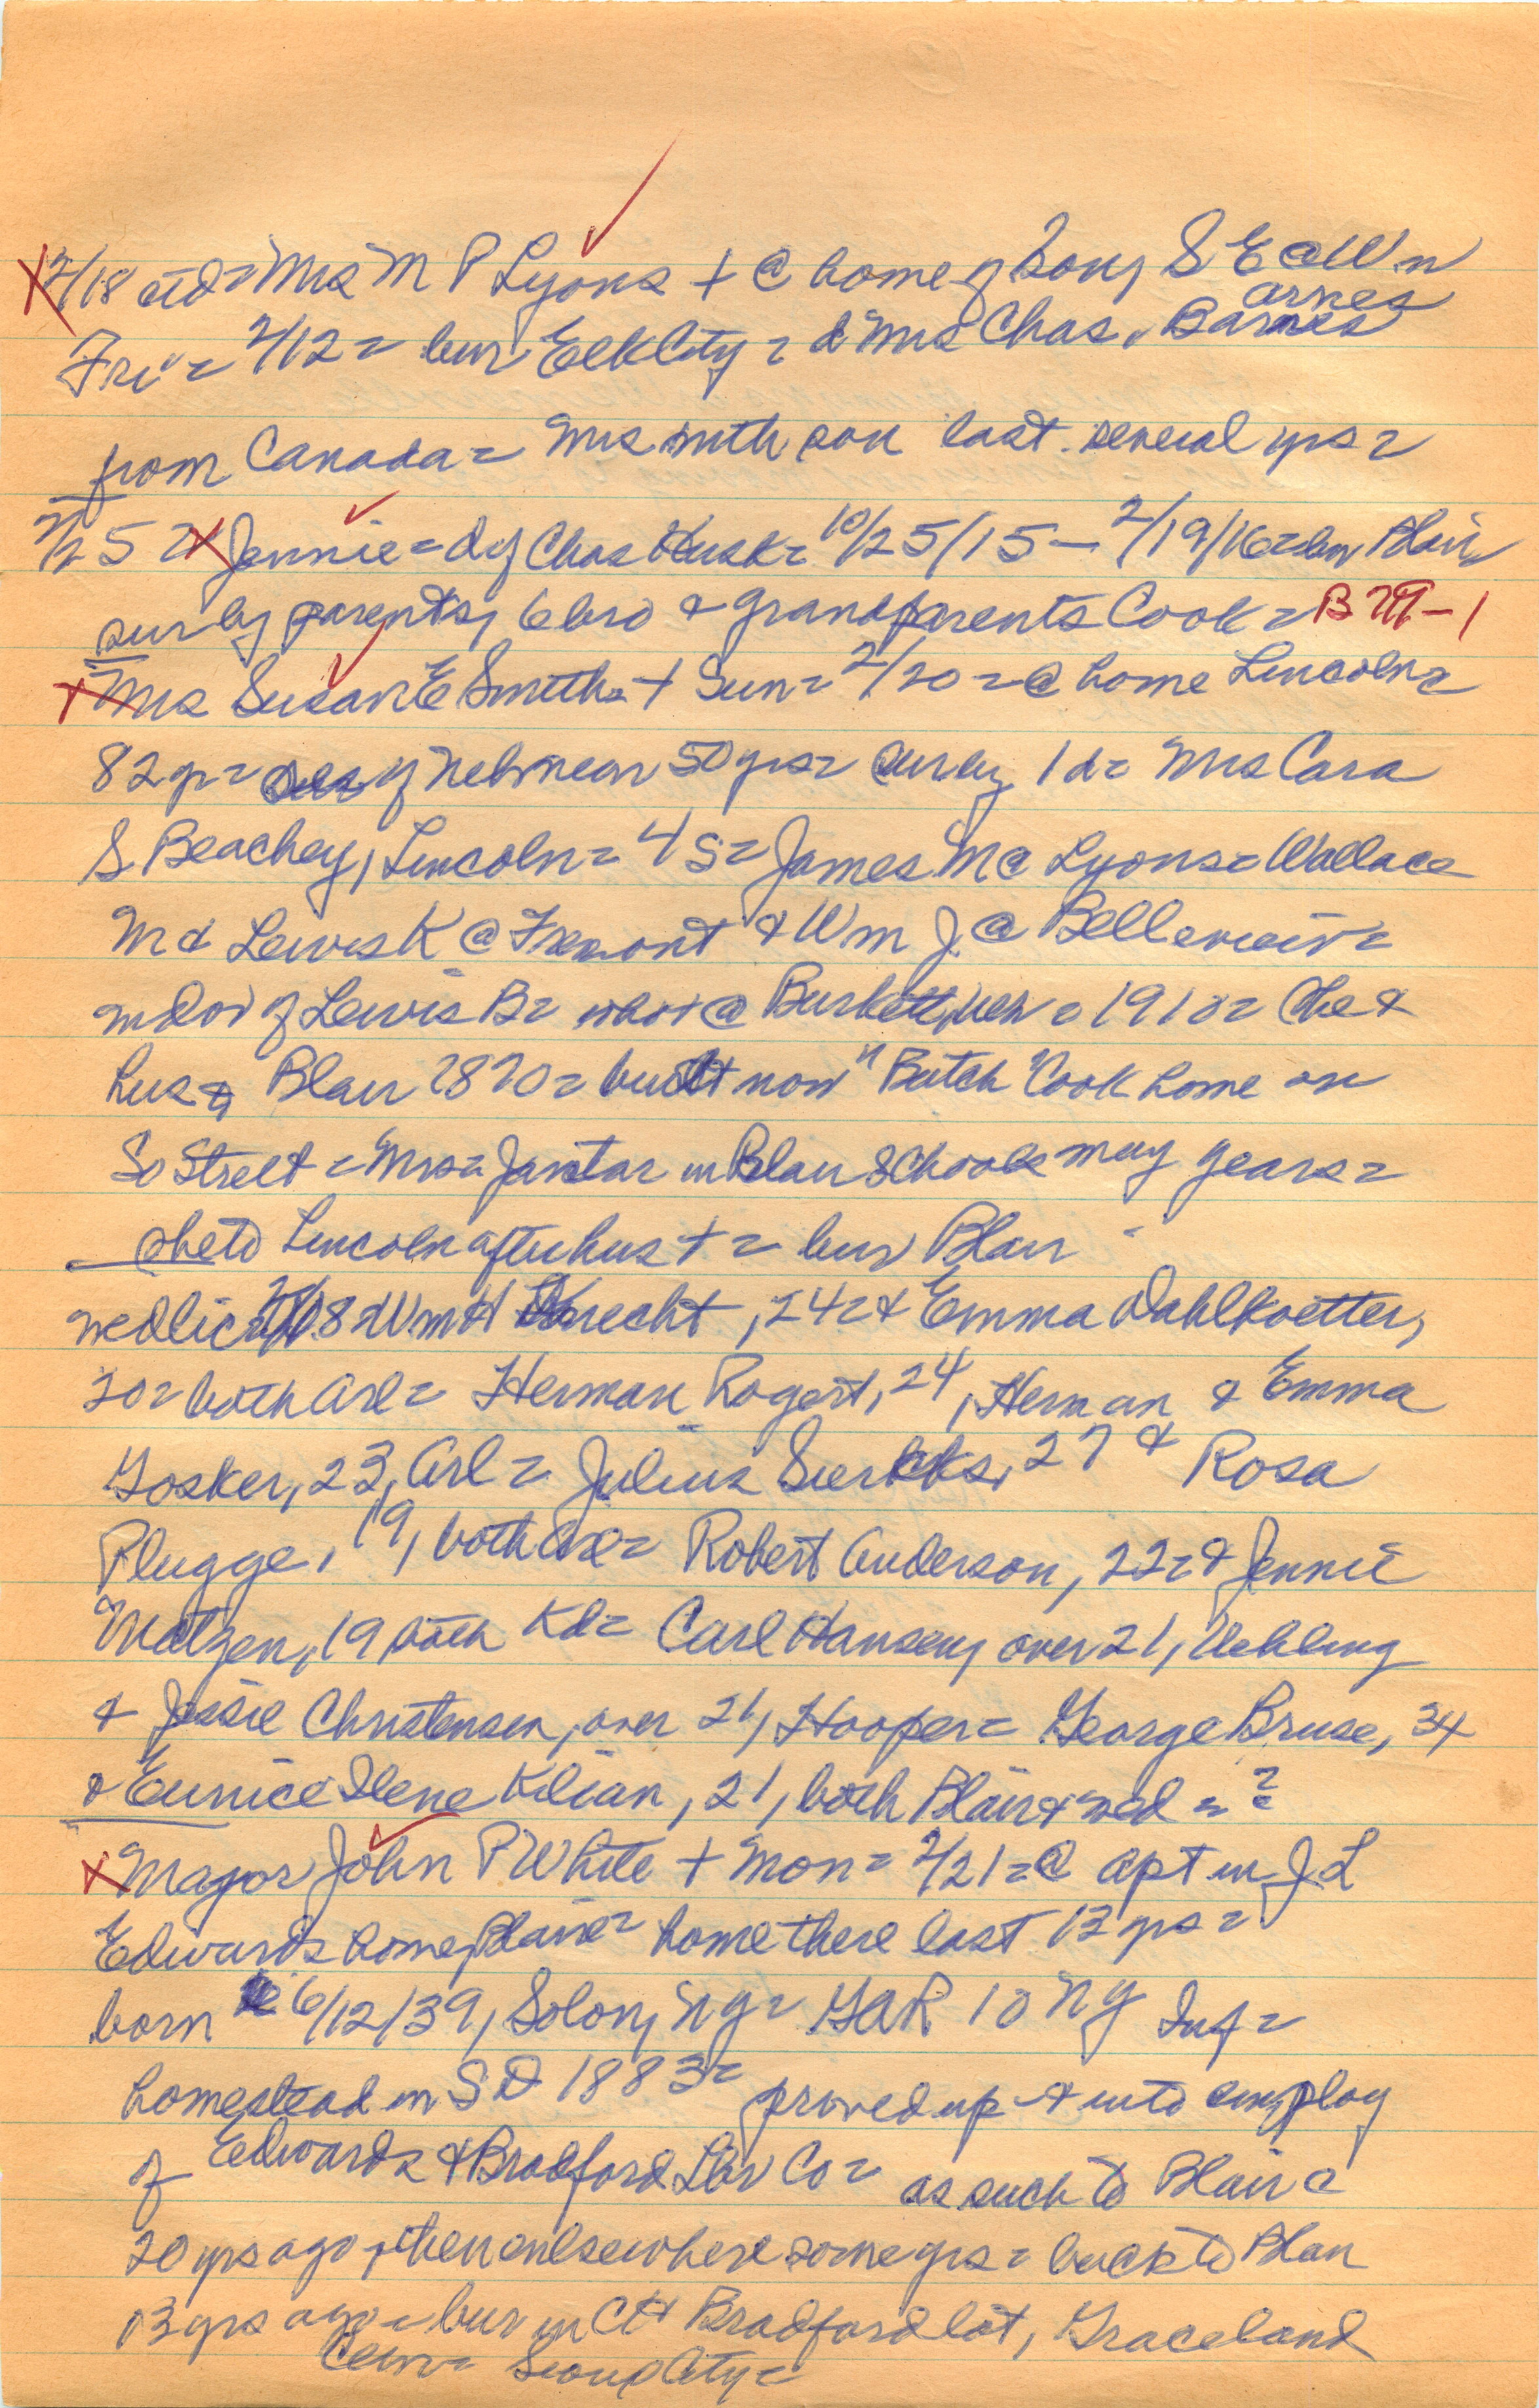 X 2/18 std = Mrs M P Lyons + @ home of son, S E @ Wn
arnes
Fri = 2/12 = bur Elk City = d Mrs Chas. Barnes
from Canada = Mrs with son last several yrs =
2/25 = X Jennie = d of Chas Husk = 10/25/15 - 2/19/16 = bur Blair
sur by parents, 6 bro & grandparents Cook = B -1
X Mrs Susan E Smith = + Sun = 2/20 = @ home Lincoln =
82 yr = res of Neb near 50 yrs = sur by 1 d = Mrs Cara
S Beachey, Lincoln = 4 s = James M @ Lyons = Wallace
M & Lewis K @ Fremont & Wm J. @ Bellevue =
wdo of Lewis B = who + @ Burkett, Neb = 1910 = she &
hus to Blair 1870 = built now "Butch" Cook home on
So Street = Mrs = janitar in Blair schools many years =
she to Lincoln after hus + = bur Blair
wed lic = 2/18 = Wm H Knecht, 24 = & Emma Dahlkoetter,
20 = both Arl = Herman Rogert, 24, Herman & Emma
Gosker, 23, Arl = Julius Sierkks, 27 & Rosa
Plugge, 19, both Arl = Robert Anderson, 22 = & Jennie
Matzen, 19, both Kd = Carl Hansen, over 21, Uehling
& Jessie Christensen, over 21, Hooper = George Bruse, 34
& Eunice Ilene Kilian, 21, both Blair & wed = ?
X Major John P White + Mon = 2/21 = @ apt in J L
Edwards home, Blair = home there last 13 yrs =
born 6/12/39, Solon, NY = GAR 10 NY Inf =
homestead in SD 1883 = proved up & into employ
of Edwards & Bradford Lbr Co = as such to Blair =
20 yrs ago, then elsewhere some yrs = back to Blair
13 yrs ago = bur in CH Bradford lot, Graceland
Cem = Sioux City =